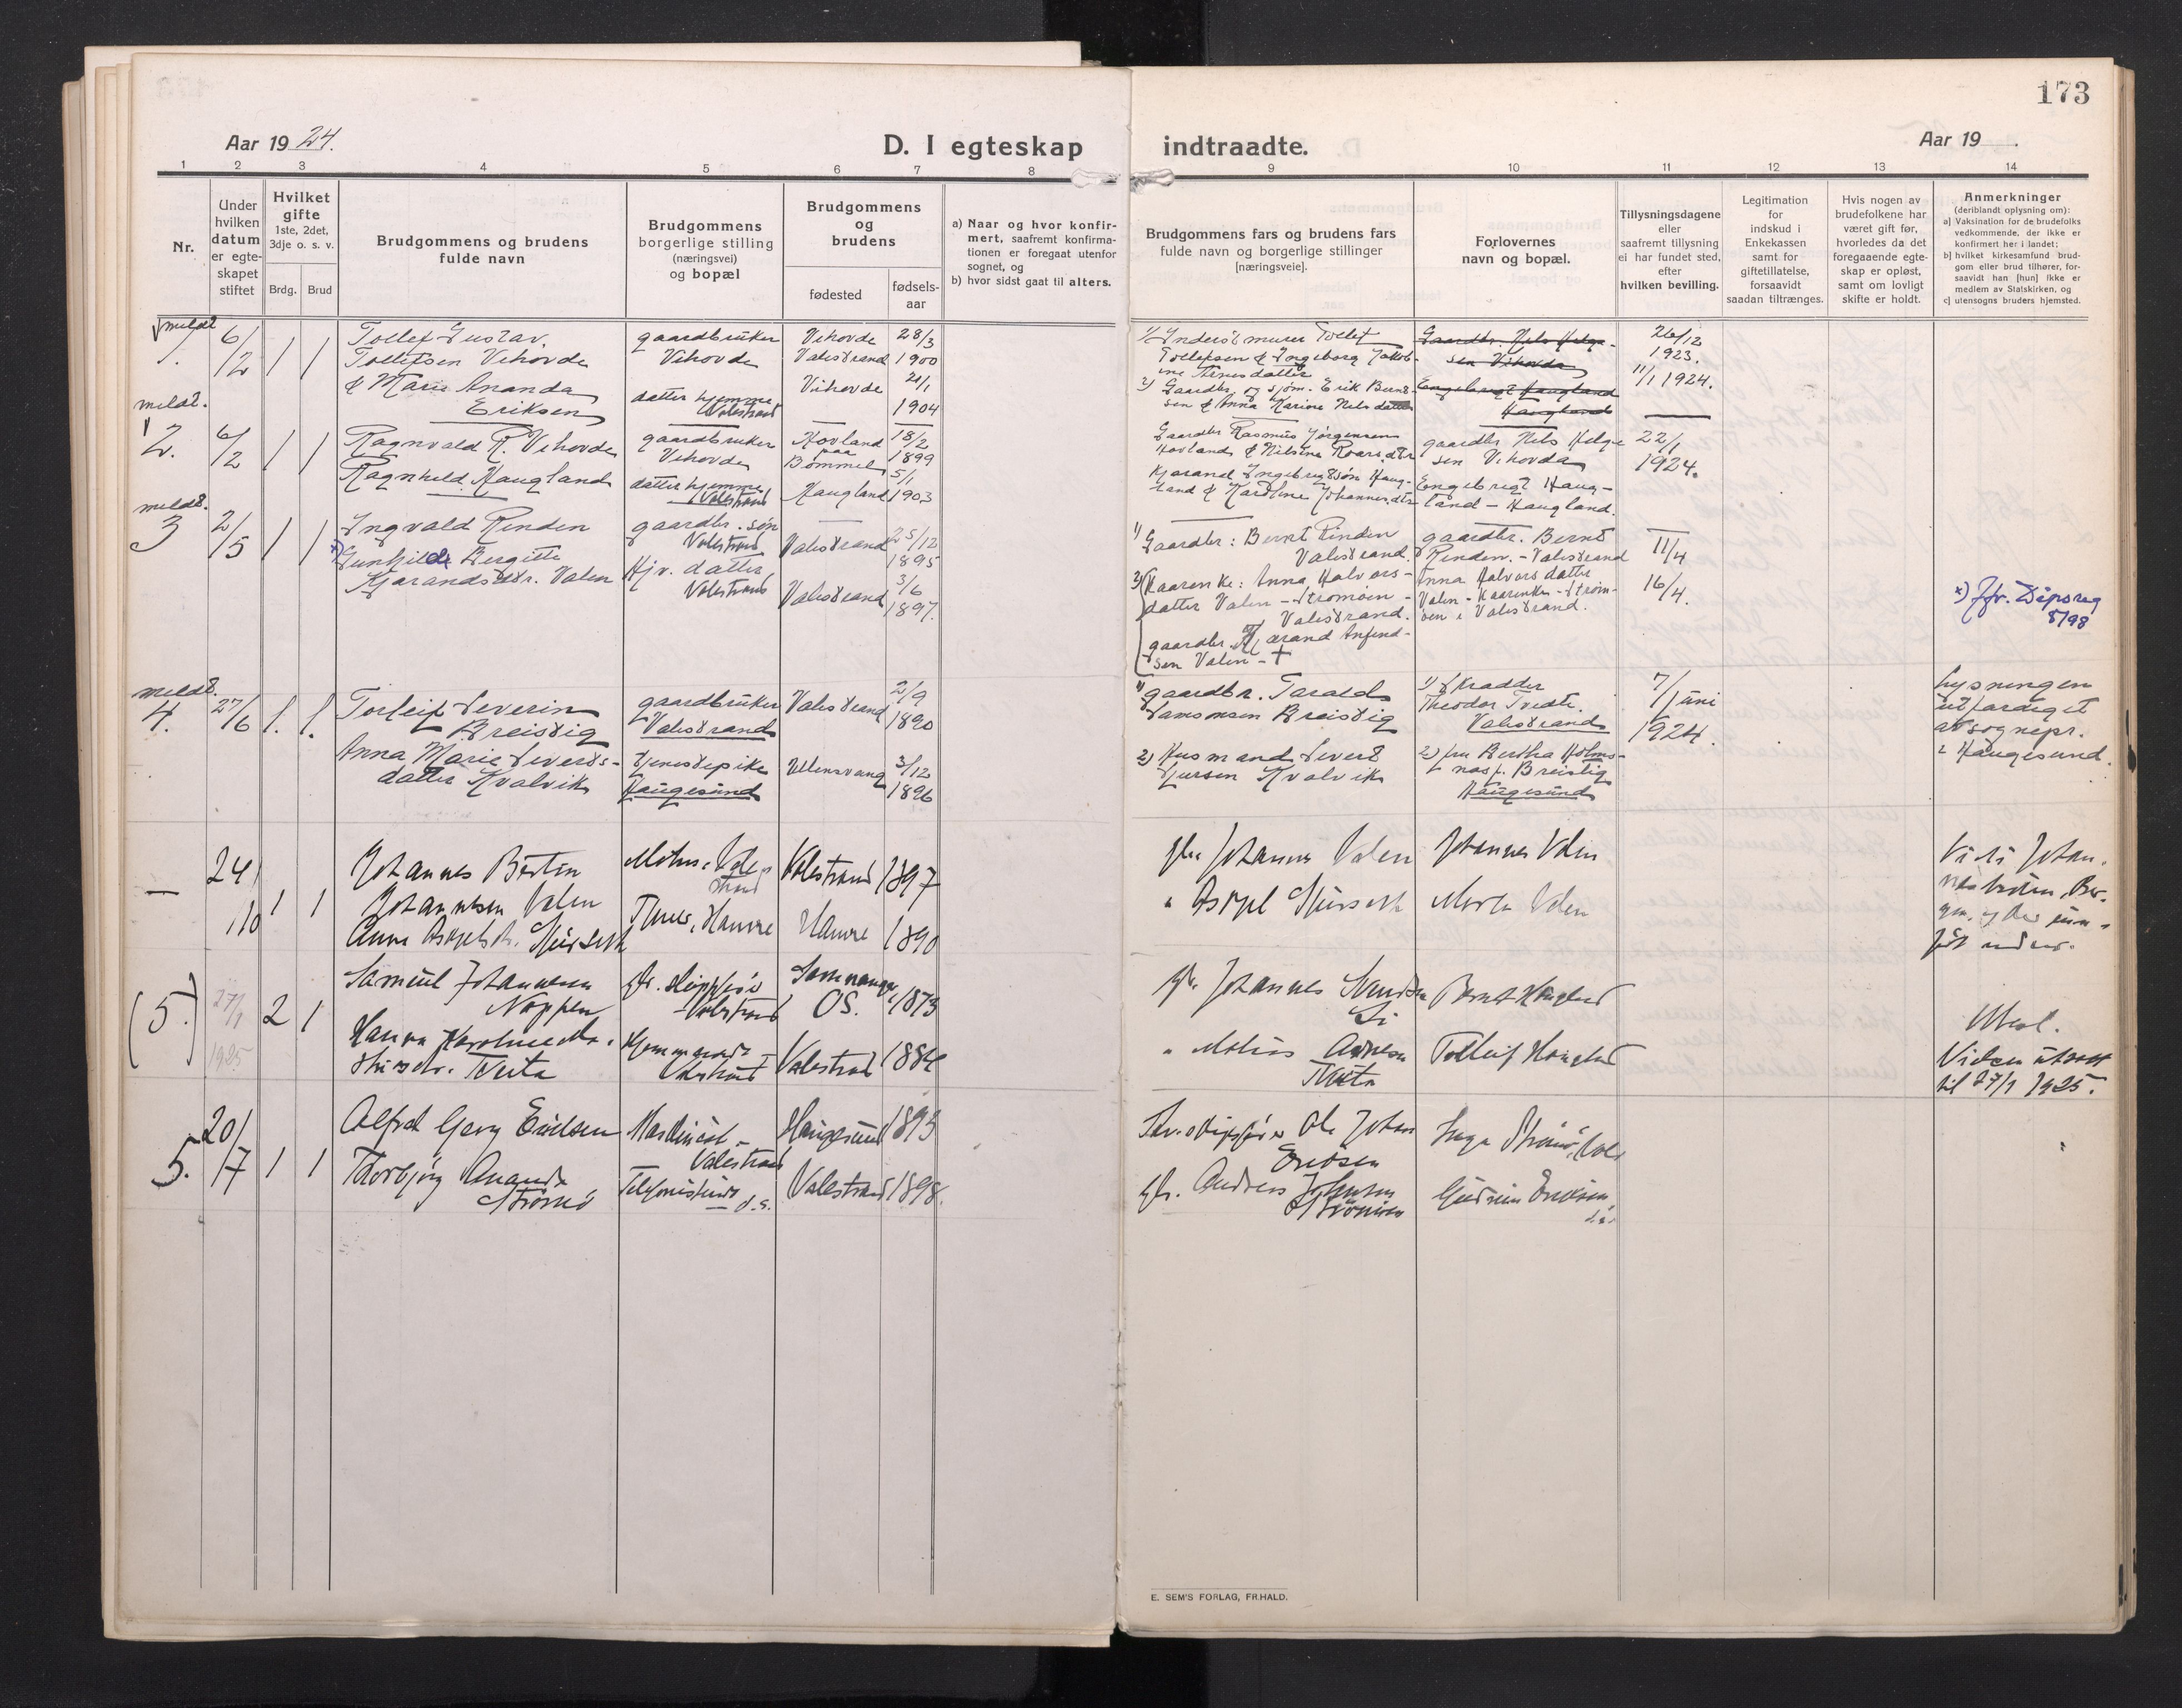 173
Aar 1924.
D. I egteskap indtraadte.
Aar 19 .
1 2 3 4 5 6 7 8 9 10 11 12 13 14
Nr.
Under
hvilken
datum
er egte-
skapet
stiftet
Hvilket
gifte
1ste, 2det,
3dje o. s. v.
Brdg.
Brud
Brudgommens og brudens
fulde navn
Brudgommens
borgerlige stilling
(næringsvei)
og bopæl
Brudgommens
og
brudens
fødested
fødsels-
aar
a) Naar og hvor konfir-
mert, saafremt konfirma-
tionen er foregaat utenfor
sognet, og
b) hvor sidst gaat til alters.
Brudgommens fars og brudens fars
fulde navn og borgerlige stillinger
[næringsveie].
Forlovernes
navn og bopæl.
Tillysningsdagene
eller
saafremt tillysning
ei har fundet sted,
efter
hvilken bevilling.
Legitimation
for
indskud i
Enkekassen
samt for
giftetillatelse,
forsaavidt
saadan tiltrænges.
Hvis nogen av
brudefolkene har
været gift før,
hvorledes da det
foregaaende egte-
skap er opløst,
samt om lovligt
skifte er holdt.
Anmerkninger
(deriblandt oplysning om):
a] Vaksination for de brudefolks
vedkommende, der ikke er
konfirmert her i landet;
b] hvilket kirkesamfund brud-
gom eller brud tilhører, for-
saavidt han [hun] ikke er
medlem av Statskirken, og
c] utensogns bruders hjemsted.
meldt
1.
6/2
1 1
Tollef Gustav
Tollefsen Vihovde
& Marie Ananda
Eriksen
gaardbruker
Vihovde
datter hjemme
Valestrand
Vihovde
Valestrand
Vihovde
28/3
1900
21/1
1904
1) Inderstmurer Tollef
Tollefsen & Ingeborg Jakob-
ine Arnesdatter
2) Gaardbr. og sjøm. Erik Bernt-
sen & Anna Karine Nilsdatter
Gaardbr. Nels Helge-
sen Vihovda
Engebregt Haugland
Haugland
26/12
1923.
11/1 1924.
meldt.
2.
6/2
1 1
Ragnvald R. Vihovde
Ragnhild Haugland
gaardbruker
Vihovde
datter hjemme
Valestrand
Hovland
paa
Bømmel
Haugland
18/2
1899
5/1
1903
Gaardbr Rasmus Jørgensen
Hovland & Nilsine Roarsdtr
Kjarand Ingebregtsøn Haug-
land & Karoline Johannesdtr
gaardbr Nils Helge
sen Vihovda
Engebregt Haug-
land - Haugland.
22/1
1924.
meldt.
3
2/5
1 1
Ingvald Rinden
x) Gunhilde Bergitte
Kjarandsdtr. Valen
gaardbr. søn
Valestrand
Hjv. datter
Valestrand
Valestrand
Valestrand
25/12
1895
3/6
1897.
1) Gaardbr: Bernt Rinden
Valestrand.
2) Kaarenke: Anna Halvors-
datter Valen - Strømøen -
Valestrand.
gaardbr. Kjarand Anfind-
sen Valen - +
gaardbr. Bernt
Rinden. - Valestrand
Anna Halvorsdatter
Valen - Kaarenke - Strøm-
øen i Valestrand.
11/4
16/4.
x) Jfr. Dåpsreg
8/98
meldt.
4.
27/6
1. 1.
Torleif Severin
Breistig
Anna Marie Severts-
datter Kvalvik
gaardbruker
Valestrand
Tjenestepike
Haugesund
Valestrand
Ullensvang
2/9
1890
3/12
1896
1) gaardbr. Tarald
Samsonsen Breistig
2) Husmand Severt
Sjursen Kvalvik
1) Skrædder
Theodor Tvedte.
Valestrand
2) fru Bertha Holms-
nas f. Breistig
Haugesund
7/Juni
1924.
Lysningen
utfærdiget
av sognepr.
i Haugesund.
—
24/10
1 1
Johannes Bertin
Johannesen Valen
Valestrand
1897
Hamre
1890
gbr Johannes Valen
Johannes Valen
Valen
(5.)
27/1
1925
2 1
Samuel Johannesen
Nappen
Hanna Karoline
Tveita
Valestrand
Os.
1873
Valestrand
1884
gbr Johannes
Li
Bernt Haugland
Tveita
Tolleif Haugland
Vielsen utsatt
til 27/1 1925.
5.
20/7
1 1
Alfred Georg Eriksen
Thorbjørg Ananda
Strømø
Maskinist -
Valestrand
Telefonistinde
d.s.
Haugesund
1893
Valestrand
1898.
Ole Johan
Eriksen
gbr. Andreas Johnsen
Strømøen
Inga Strømø,
Gudrun Eriksen
E. SEM'S FORLAG, FR.HALD.